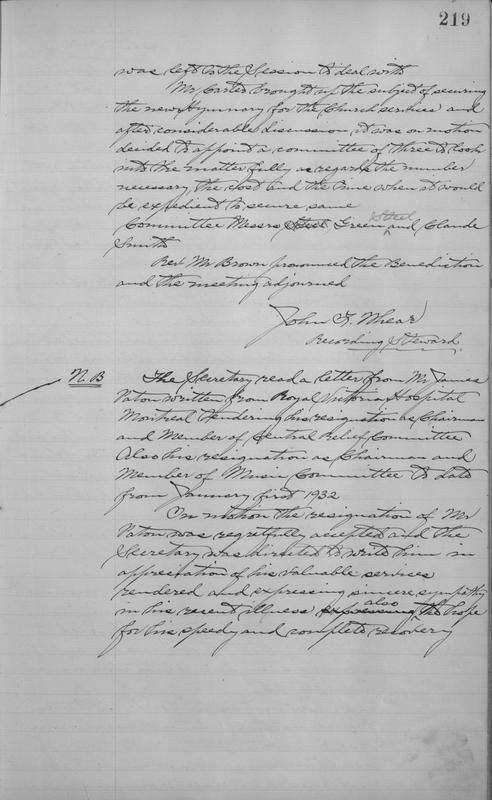 219
was left to the Session to deal with
Mr Carter brought up the subject of securing
the new Hymnary for the Church services and
after considerable discussion, it was on motion
decided to appoint a committee of three to look
into the matter fully as regards the number
necessary the cost and the time when it would
be expedient to secure same
Steel
Committee Messrs Steel Green ^ and Claude
Smith
Rev. Mr Brown pronounced the Benediction
and the meeting adjourned
John F. Whear
Recording Steward
N.B The Secretary read a letter from Mr James
Paton written from Royal Victoria Hospital
Montreal tendering his resignation as Chairman
and Member of Central Relief Committee
Also his resignation as Chairman and
Member of Music Committee to date
from January first 1932
On motion the resignation of Mr
Paton was regretfully accepted and the
Secretary was directed to write him in
appreciation of his valuable services
rendered and expressing sincere sympathy
also
in his recent illness expressing ^ the hope
for his speedy and complete recovery